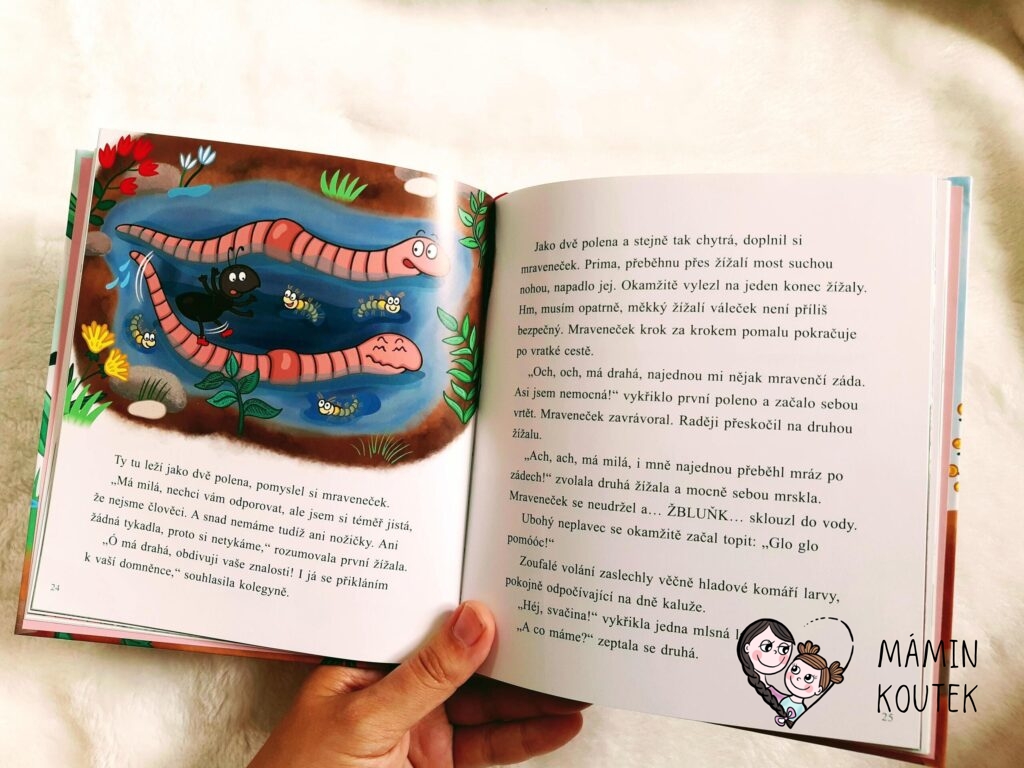 Ty tu leží jako dvě polena, pomyslel si mraveneček.
„Má milá, nechci vám odporovat, ale jsem si téměř jistá,
že nejsme člověci. A snad nemáme tudíž ani nožičky. Ani
žádná tykadla, proto si netykáme,“ rozumovala první žížala.
„Ó má drahá, obdivuji vaše znalosti! I já se přikláním
k vaší domněnce,“ souhlasila kolegyně.
24
Jako dvě polena a stejně tak chytrá, doplnil si
mraveneček. Prima, přeběhnu přes žížalí most suchou
nohou, napadlo jej. Okamžitě vylezl na jeden konec žížaly.
Hm, musím opatrně, měkký žížalí váleček není příliš
bezpečný. Mraveneček krok za krokem pomalu pokračuje
po vratké cestě.
„Och, och, má drahá, najednou mi nějak mravenčí záda.
Asi jsem nemocná!“ vykřiklo první poleno a začalo sebou
vrtět. Mraveneček zavrávoral. Raději přeskočil na druhou
žížalu.
„Ach, ach, má milá, i mně najednou přeběhl mráz po
zádech!“ zvolala druhá žížala a mocně sebou mrskla.
Mraveneček se neudržel a… ŽBLUŇK… sklouzl do vody.
Ubohý neplavec se okamžitě začal topit: „Glo glo
pomóóc!“
Zoufalé volání zaslechly věčně hladové komáří larvy,
pokojně odpočívající na dně kaluže.
„Héj, svačina!“ vykřikla jedna mlsná
„A co máme?“ zeptala se druhá.
25
MÁMIN
KOUTEK